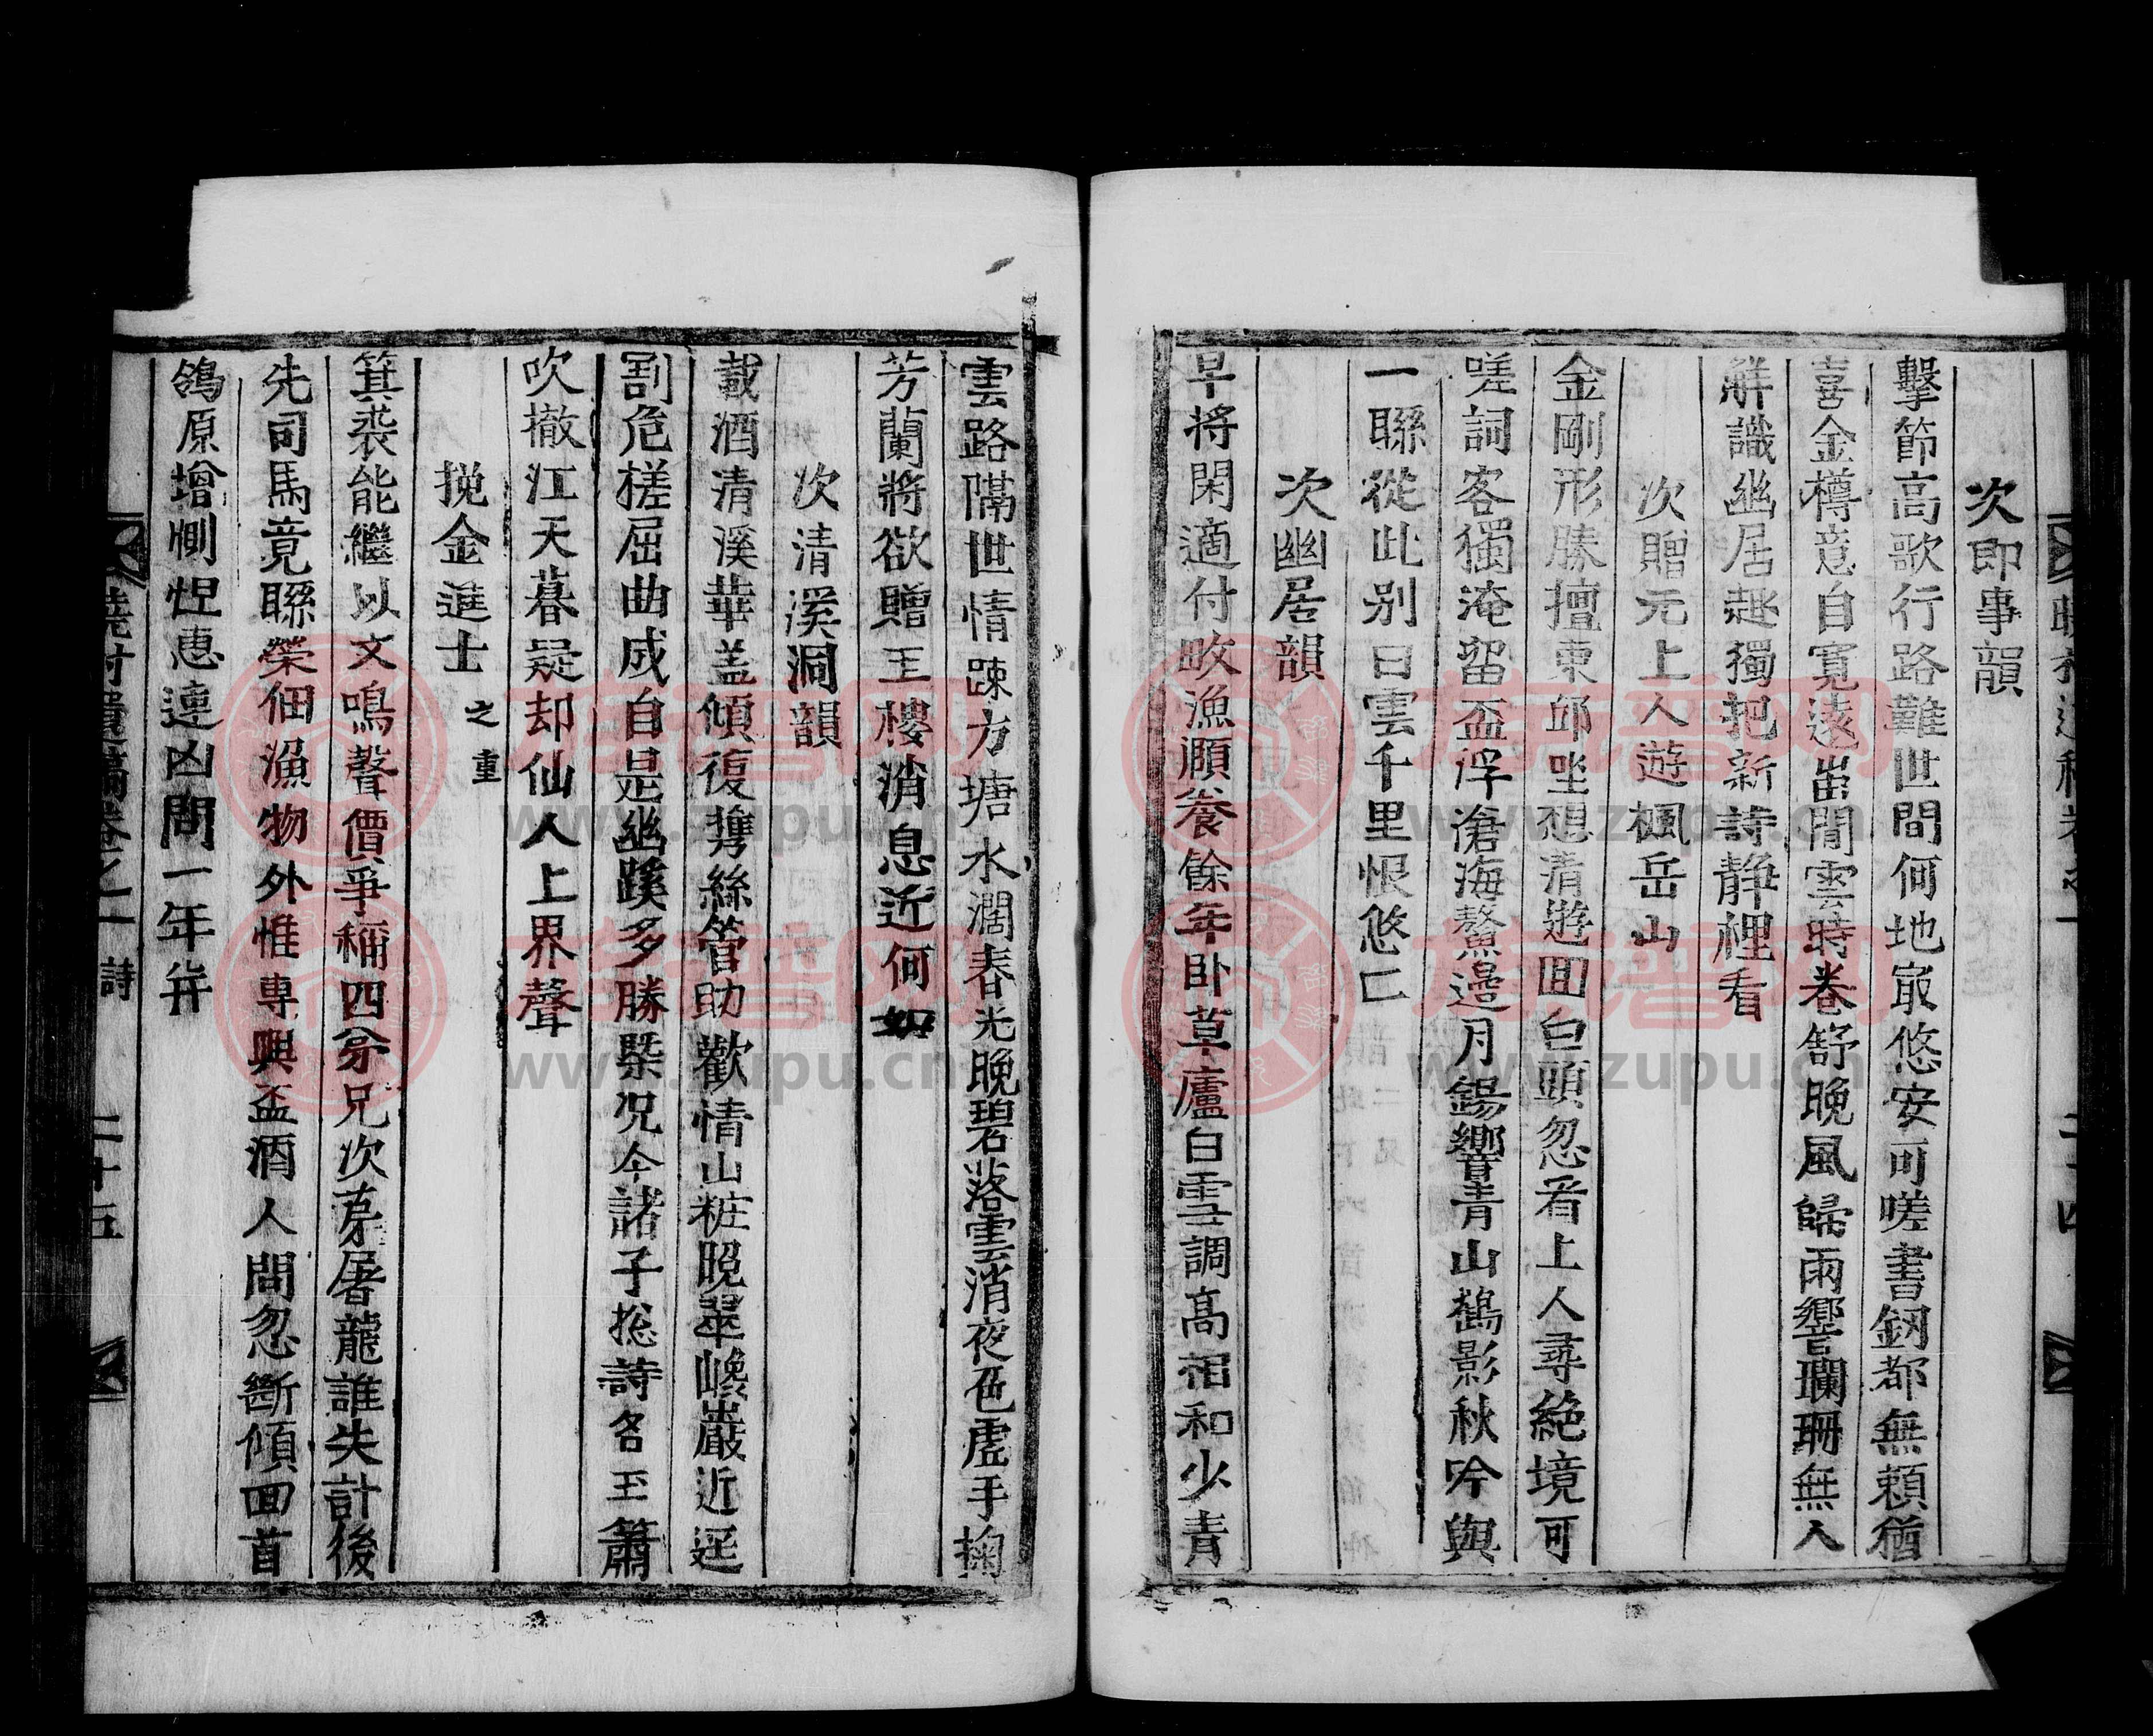 次即事韻
擊節高歌行路難世間何地㝡悠安可嗟書釼都無頼猶
喜金樽意自寬遠岀閒雲時卷舒晚風歸雨響瓓珊無人
解識幽居趣獨把新詩静裡看
次贈元上人遊楓岳山
金剛形勝擅東邱坐想清遊囬白頭忽看上人尋絶境可
嗟詞客獨淹留盃浮滄海鰲邉月錫響青山鶴影秋吟與
一聯從此别日雲千里恨悠匸
次幽居韻
早將閑適付畋漁頤養餘年卧草廬白雪調高相和少青
雲路隔世情踈方塘水濶春光晚碧落雲消夜色虛手掬
芳蘭將欲贈玉樓消息近何如
次清溪洞韻
載酒清溪華盖傾復携絲管助歡情山粧晚翠巉巖近逕
割危槎屈曲成自是幽蹊多勝槩况今諸子捴詩名玉簫
吹撤江天暮疑却仙人上界聲
挽金進士 之重
箕裘能繼以文鳴聲價爭稱四弟兄次苐屠龍誰失計後
先司馬竟聯榮佃漁物外惟專興盃酒人間忽斷傾回首
鴒原增惻怛惠連凶問一年并
晩村遺稿卷之一 詩 二十五